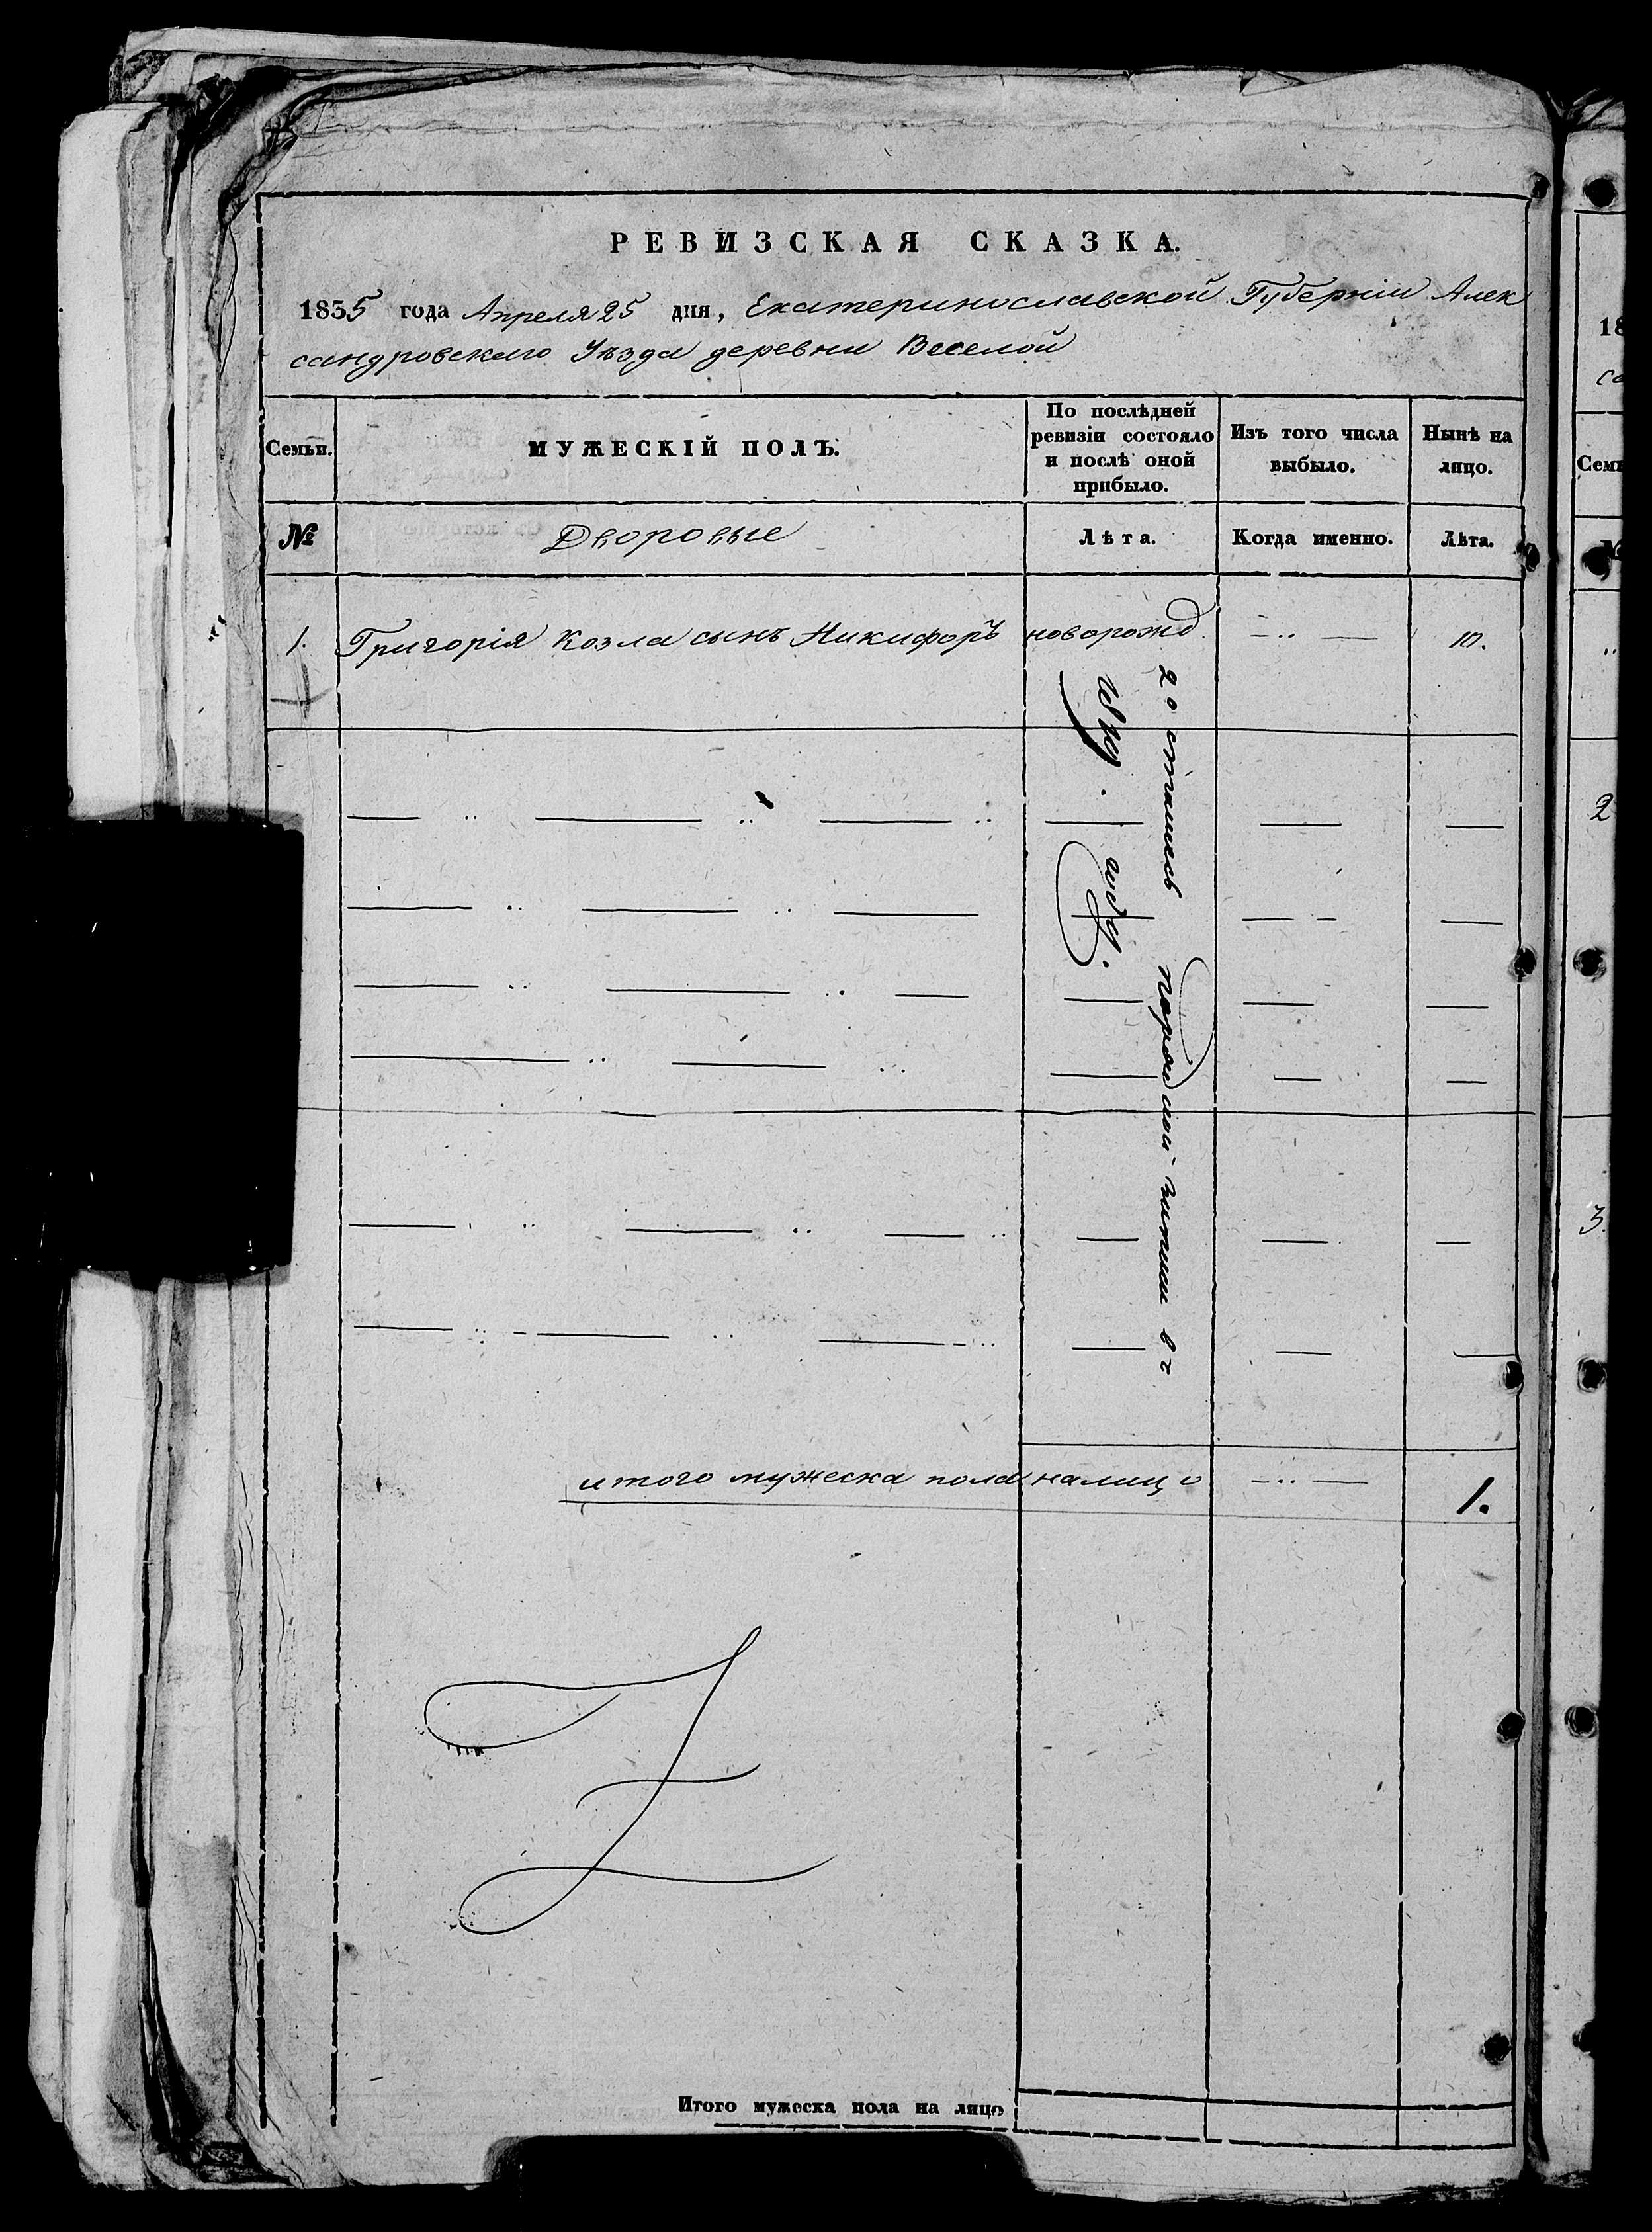 РЕВИЗСКАЯ СКАЗКА.
1835 года Апреля 25 дня, Екатеринославской Губерніи Алек
сандровского Уѣзда деревни Веселой
Семьи.
МУЖЕСКІЙ ПОЛЪ.
По послѣдней
ревизіи состояло
и послѣ оной
прибыло.
Изъ того числа
выбыло.
Нынѣ на
лицо.
№
Дворовые
Лѣта.
Когда именно.
Лѣта.
1. Григорія Козла сынъ Никифоръ новорожд. 10.
итого мужеска пола налицо 1.
Итого мужеска пола на лицо
18
Семь
2
3.